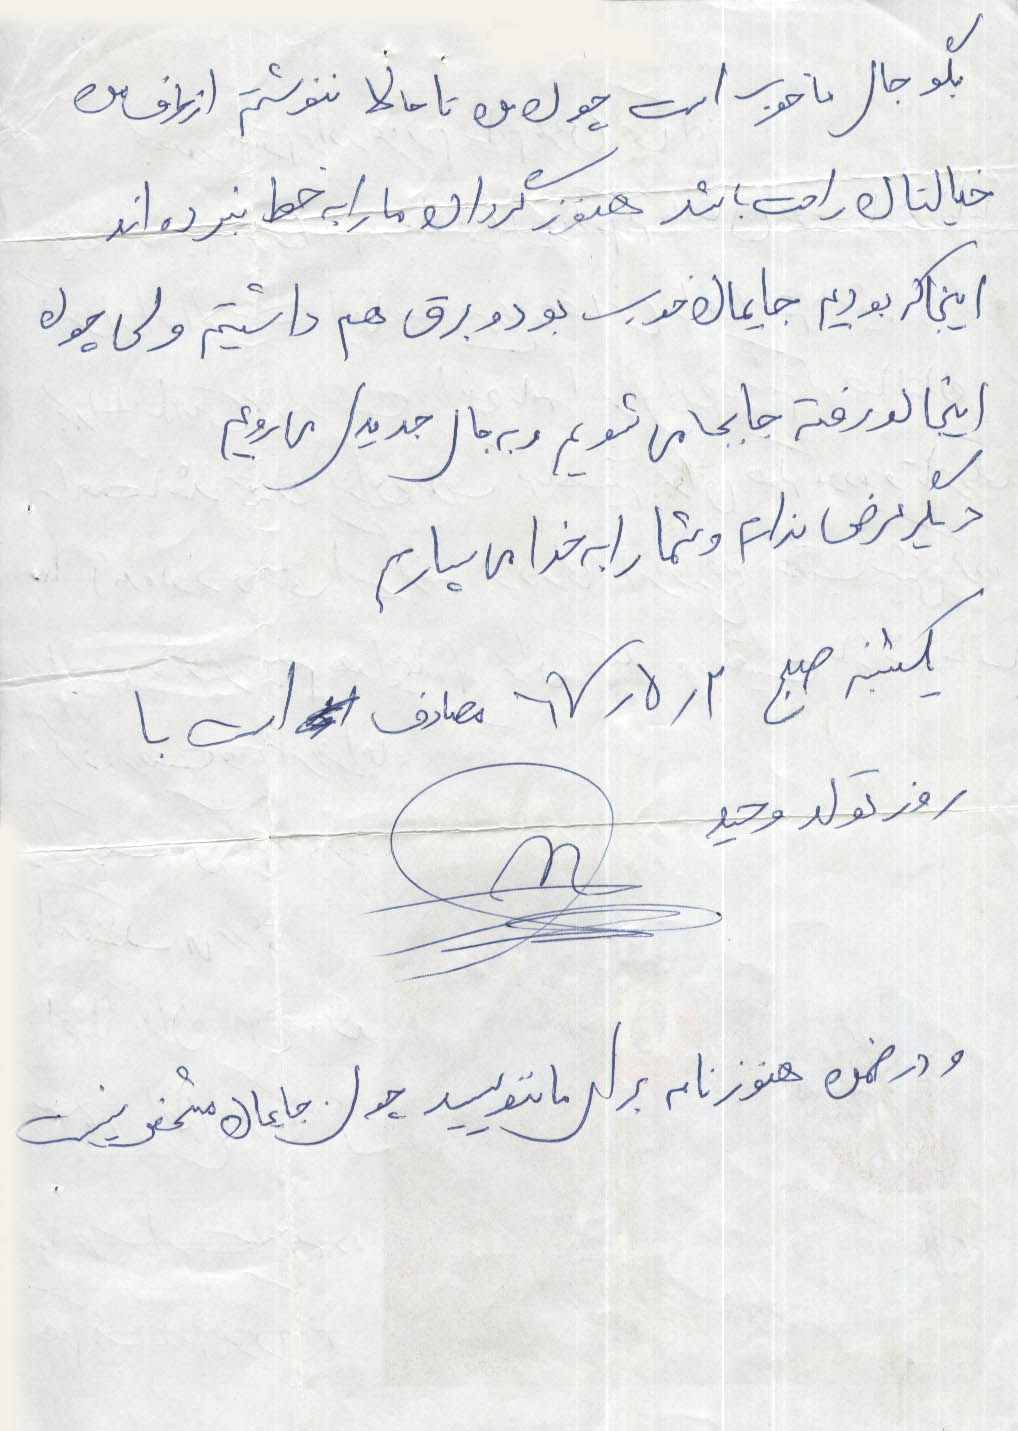 بگو حال ما خوب است چون من تا حالا ننوشتم از طرف من
خیالتان راحت باشد هنوز گردان ما را به خط نبرده اند
اینجا که بودیم جایمان خوب بود و برق هم داشتیم ولی چون
اینجا لو رفته جابجا می شویم و به جای جدیدی می رویم
دیگر عرضی ندارم و شما را به خدا می سپارم
یکشنبه صبح ۲ر۵ر۶۷ مصادف است با
روز تولد وحید
و در ضمن هنوز نامه برای ما ننویسید چون جایمان مشخص نیست